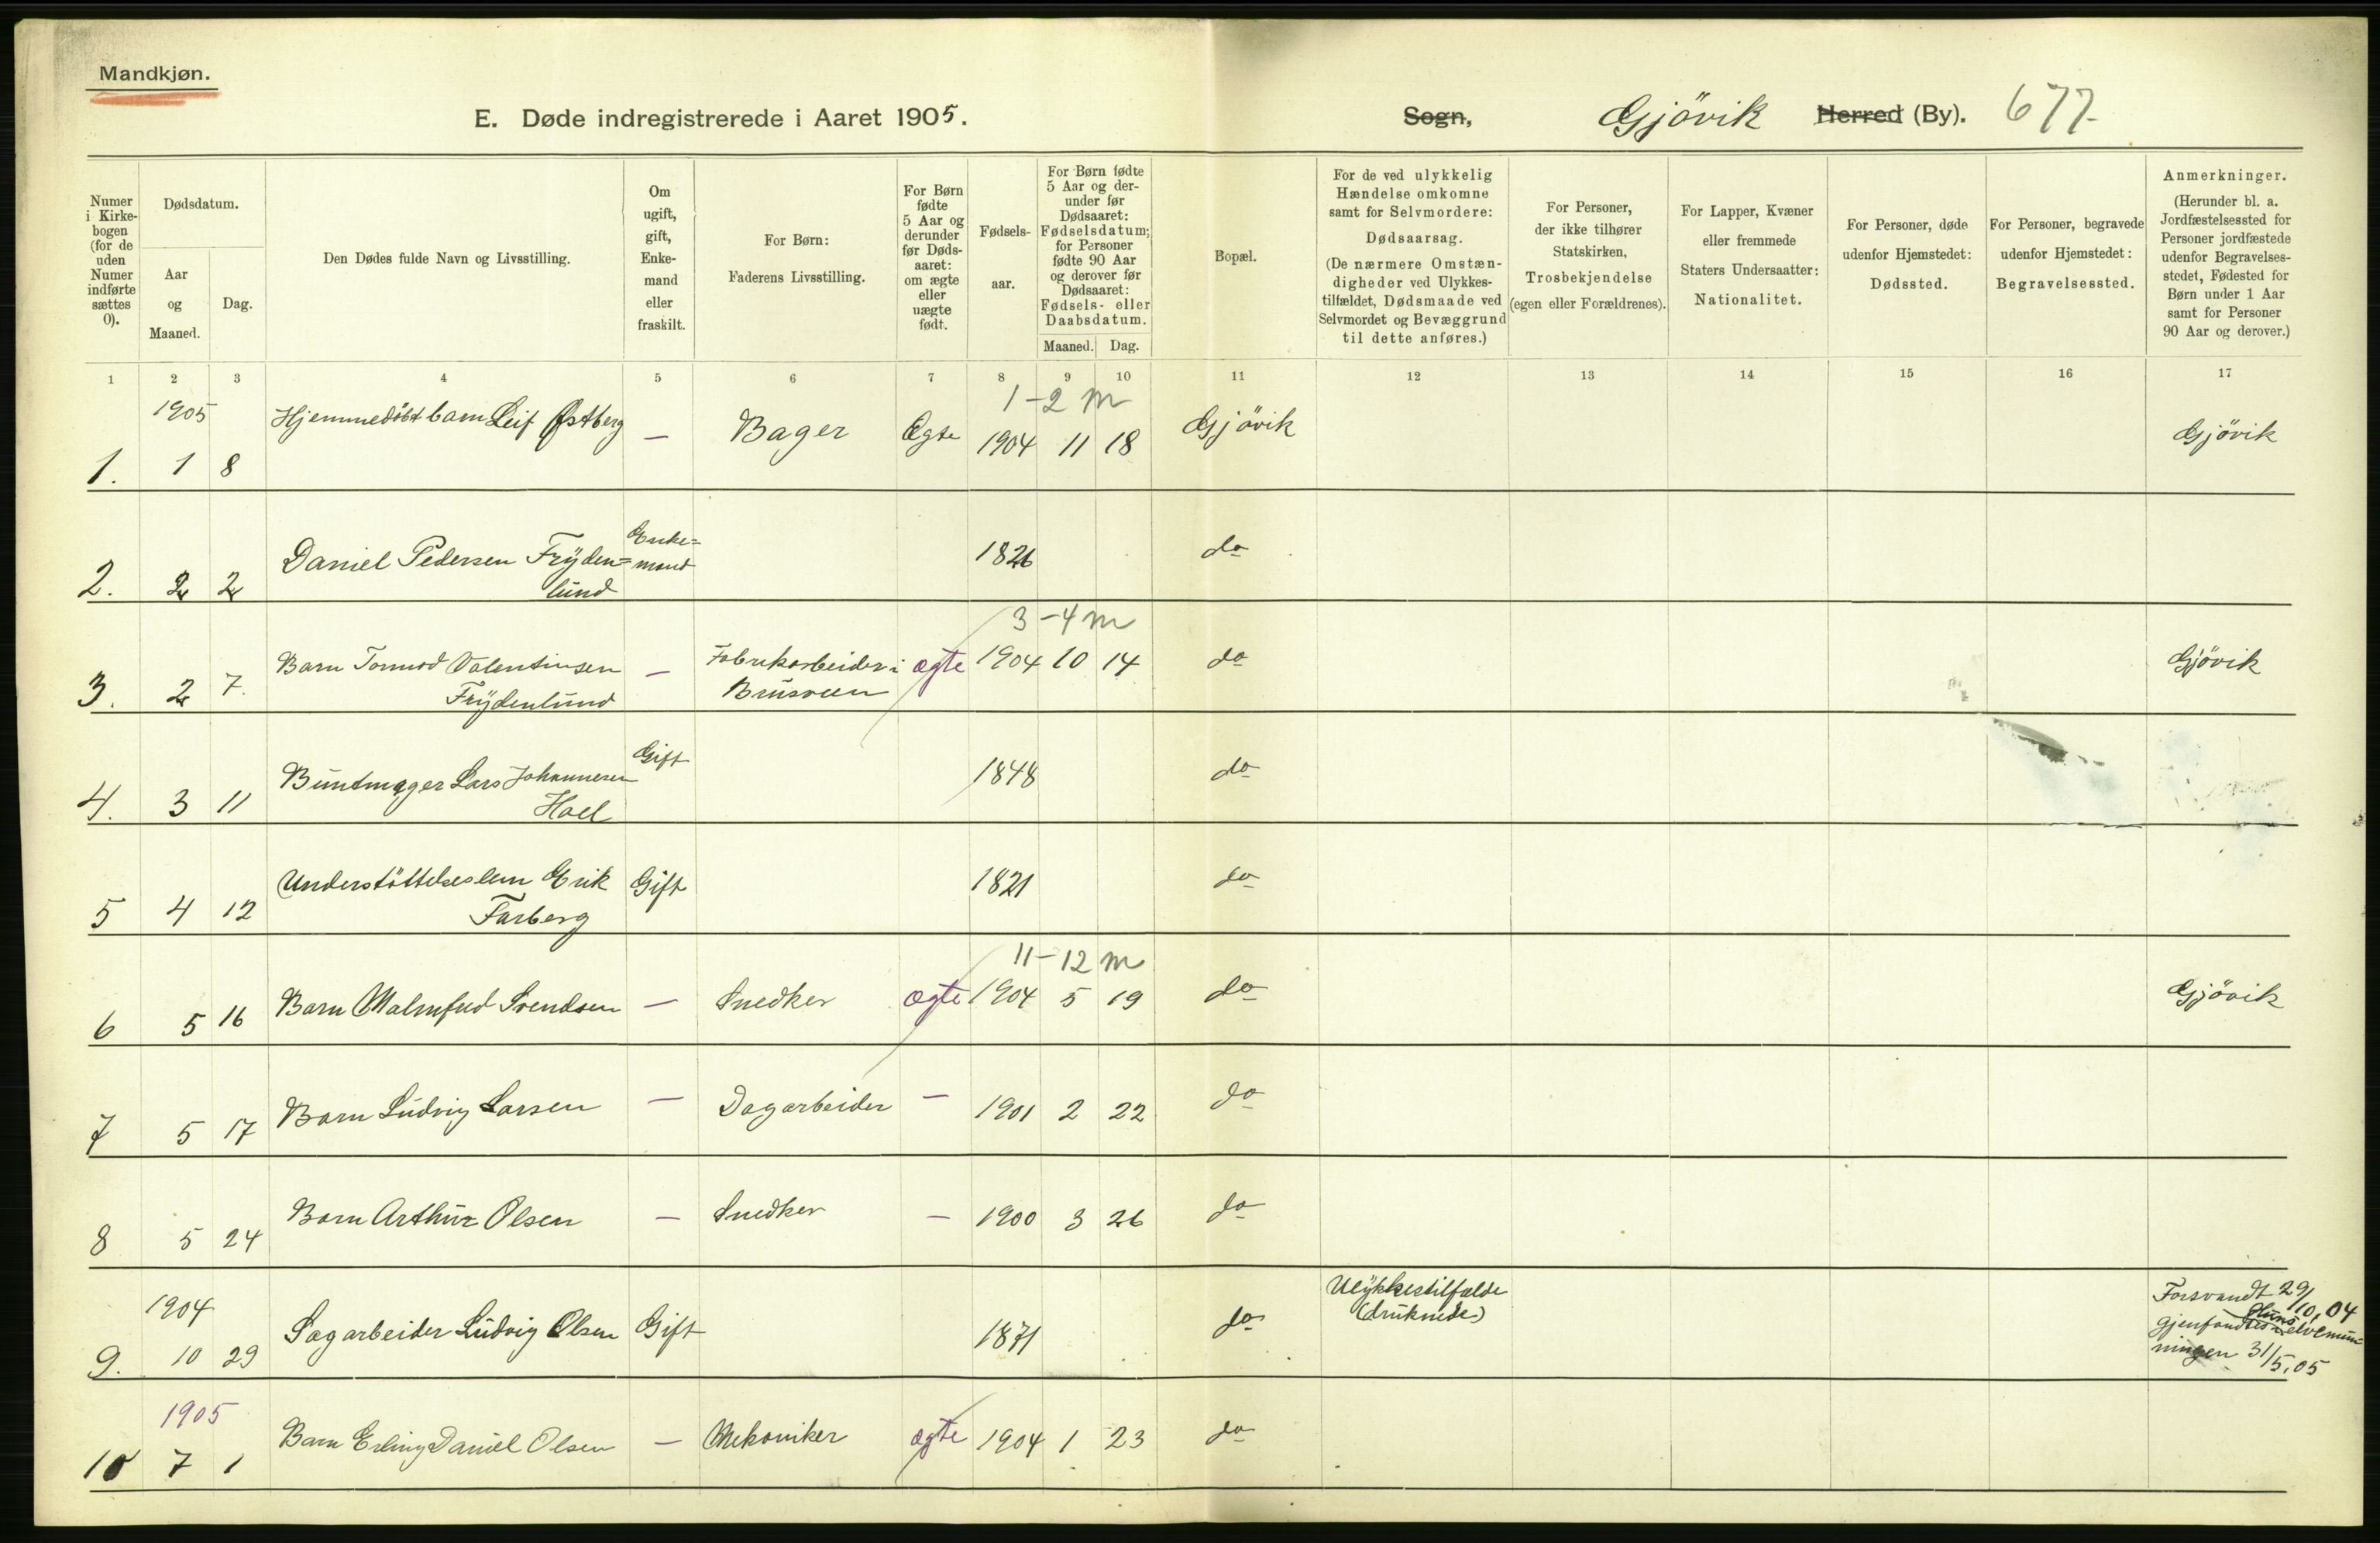 Mandkjøn.
E. Døde indregistrerede i Aaret 1905.
Sogn, Gjövik Herred (By). 677.
Numer i Kirke-bogen (for de uden Numer indførte sættes 0).
Dødsdatum.
Aar og Maaned.
Dag.
Den Dødes fulde Navn og Livsstilling.
Om ugift, gift, Enke-mand eller fraskilt.
For Børn:
Faderens Livsstilling.
For Børn fødte 5 Aar og derunder før Døds-aaret: om ægte eller uægte født.
Fødsels-aar.
For Børn fødte 5 Aar og der-under før Dødsaaret: Fødselsdatum; for Personer fødte 90 Aar og derover før Dødsaaret: Fødsels- eller Daabsdatum.
Maaned. Dag.
Bopæl.
For de ved ulykkelig Hændelse omkomne samt for Selvmordere: Dødsaarsag. (De nærmere Omstæn-digheder ved Ulykkes-tilfældet, Dødsmaade ved Selvmordet og Bevæggrund til dette anføres.)
For Personer, der ikke tilhører Statskirken, Trosbekjendelse (egen eller Forældrenes).
For Lapper, Kvæner eller fremmede Staters Undersaatter: Nationalitet.
For Personer, døde udenfor Hjemstedet: Dødssted.
For Personer, begravede udenfor Hjemstedet: Begravelsessted.
Anmerkninger. (Herunder bl. a. Jordfæstelsessted for Personer jordfæstede udenfor Begravelses-stedet, Fødested for Børn under 1 Aar samt for Personer 90 Aar og derover.)
1 2 3 4 5 6 7 8 9 10 11 12 13 14 15 16 17
1905 1-2 m
1. 1 8 Hjemmedöbt barn Leif Østberg — Bager Ægte 1904 11 18 Gjövik Gjövik
2. 2 2 Daniel Pedersen Frÿden=lund Enke=mand 1826 do
3-4 m
3. 2 7. Barn Tormod Valentinsen Frÿdenlund — Fabrikarbeider i Brusveen ægte 1904 10 14 do Gjövik
4. 3 11 Buntmager Lars Johannesen Hoel Gift 1848 do
5 4 12 Understöttelseslem Erik Farberg Gift 1821 do
11-12 m
6 5 16 Barn Malmfred Svendsen — Snedker ægte 1904 5 19 do Gjövik
7 5 17 Barn Ludvig Larsen — Dagarbeider — 1901 2 22 do
8 5 24 Barn Arthur Olsen — Snedker — 1900 3 26 do
1904
9. 10 29 Sagarbeider Ludvig Olsen Gift 1871 do Ulÿkkestilfælde (druknede) Forsvandt 29/10, 04 gjenfandtes i Huns elvemun-ningen 31/5, 05
1905
10 7 1 Barn Erling Daniel Olsen — Mekaniker ægte 1904 1 23 do